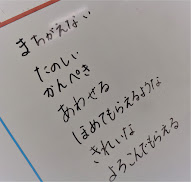 まちがえない
たのしい
かんぺき
あわせる
ほめてもらえるような
きれいな
よろこんでもらえる